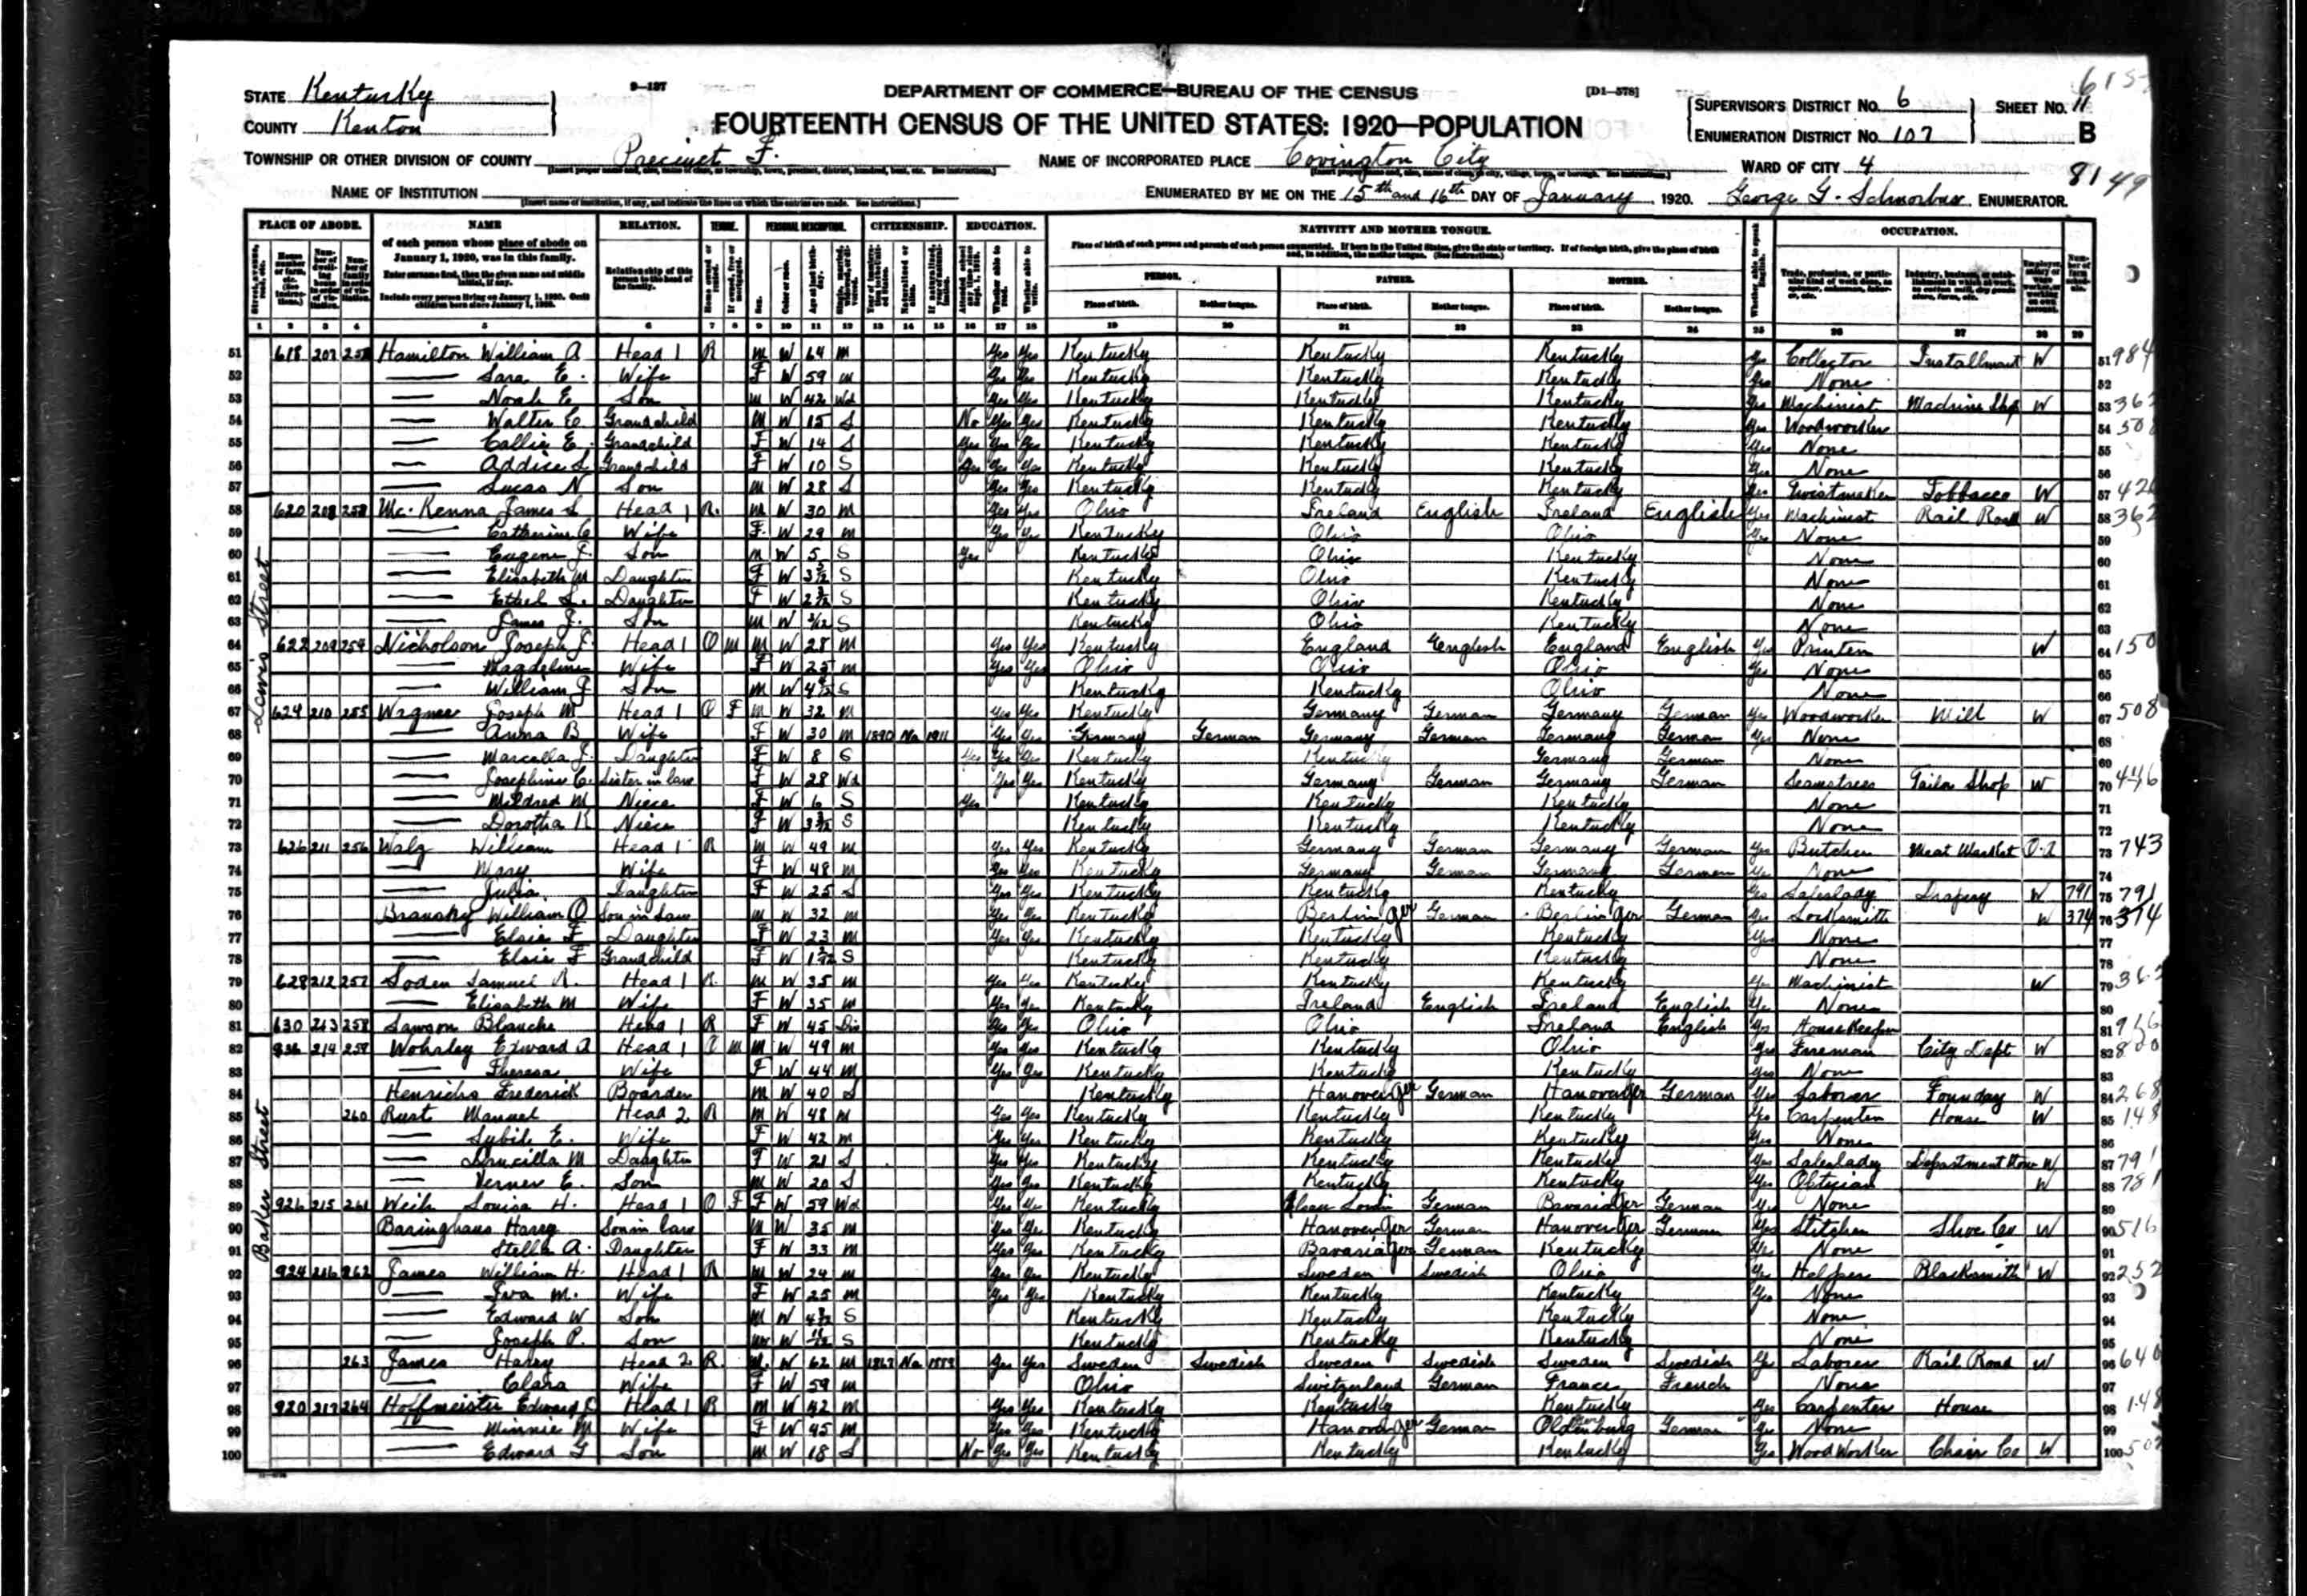 6153
STATE Kentucky
9-137
DEPARTMENT OF COMMERCE—BUREAU OF THE CENSUS
[D1-578]
SUPERVISOR'S DISTRICT No. 6 SHEET No. 11
COUNTY Kenton
FOURTEENTH CENSUS OF THE UNITED STATES: 1920—POPULATION
ENUMERATION DISTRICT No. 107 B
TOWNSHIP OR OTHER DIVISION OF COUNTY Precinct F.
NAME OF INCORPORATED PLACE Covington City
WARD OF CITY 4
8149
NAME OF INSTITUTION
ENUMERATED BY ME ON THE 15th and 16th DAY OF January, 1920. George G. ENUMERATOR.
PLACE OF ABODE. NAME RELATION. TENURE. PERSONAL DESCRIPTION. CITIZENSHIP. EDUCATION. NATIVITY AND MOTHER TONGUE. OCCUPATION.
of each person whose place of abode on January 1, 1920, was in this family.
Enter surname first, then the given name and middle initial, if any.
Include every person living on January 1, 1920. Omit children born since January 1, 1920.
Relationship of this person to the head of the family.
Place of birth of each person and parents of each person enumerated. If born in the United States, give the state or territory. If of foreign birth, give the place of birth and, in addition, the mother tongue. (See Instructions.)
PERSON. FATHER. MOTHER.
Place of birth. Mother tongue. Place of birth. Mother tongue. Place of birth. Mother tongue.
1 2 3 4 5 6 7 8 9 10 11 12 13 14 15 16 17 18 19 20 21 22 23 24 25 26 27 28 29
Lewis Street
51 618 207 252 Hamilton William A Head 1 R M W 64 M Yes Yes Kentucky Kentucky Kentucky Yes Collector Installment W 51 984
52 — Sara E. Wife F W 59 M Yes Yes Kentucky Kentucky Kentucky Yes None 52
53 — Noah E. Son M W 42 Wd Yes Yes Kentucky Kentucky Kentucky Yes Machinist Machine Shop W 53 362
54 — Walter E Grandchild M W 15 S No Yes Yes Kentucky Kentucky Kentucky Yes Woodworker 54 508
55 — Callie E. Grandchild F W 14 S Yes Yes Yes Kentucky Kentucky Kentucky Yes None 55
56 — Addice L Grandchild F W 10 S Yes Yes Yes Kentucky Kentucky Kentucky Yes None 56
57 — Lucas N Son M W 28 S Yes Yes Kentucky Kentucky Kentucky Yes Twistmaker Tobbacco W 57 426
58 620 208 253 Mc. Kenna James L Head 1 R. M W 30 M Yes Yes Ohio Ireland English Ireland English Yes Machinist Rail Road W 58 362
59 — Catherine C Wife F W 29 M Yes Yes Kentucky Ohio Ohio Yes None 59
60 — Eugene J. Son M W 5 S Yes Kentucky Ohio Kentucky None 60
61 — Elisabeth M Daughter F W S Kentucky Ohio Kentucky None 61
62 — Ethel L. Daughter F W S Kentucky Ohio Kentucky None 62
63 — James J. Son M W S Kentucky Ohio Kentucky None 63
64 622 209 254 Nicholson Joseph J. Head 1 O M M W 28 M Yes Yes Kentucky England English England English Yes Printer W 64 150
65 — Magdeline Wife F W 25 M Yes Yes Ohio Ohio Ohio Yes None 65
66 — William J Son M W S Kentucky Kentucky Ohio None 66
67 624 210 255 Wagner Joseph M Head 1 O F M W 32 M Yes Yes Kentucky Germany German Germany German Yes Woodworker Mill W 67 508
68 — Anna B Wife F W 30 M 1890 Na 1911 Yes Yes Germany German Germany German Germany German Yes None 68
69 — Marcella J. Daughter F W 8 S Yes Yes Yes Kentucky Kentucky Germany German None 69
70 — Josephine C. Sister in law F W 28 Wd Yes Yes Kentucky Germany German Germany German Seamstress Tailor Shop W 70 446
71 — Mildred M Niece F W 6 S Yes Kentucky Kentucky Kentucky None 71
72 — Dorotha K Niece F W S Kentucky Kentucky Kentucky None 72
73 626 211 256 Walz William Head 1 R M W 49 M Yes Yes Kentucky Germany German Germany German Yes Butcher Meat Market O.A 73 743
74 — Mary Wife F W 48 M Yes Yes Kentucky Germany German Germany German Yes None 74
75 — Julia Daughter F W 25 S Yes Yes Kentucky Kentucky Kentucky Yes Saleslady Drapery W 791 75 791
76 Bransky William O Son in Law M W 32 M Yes Yes Kentucky Berlin Ger German Berlin Ger German Yes Locksmith W 374 76 374
77 — Elsie F Daughter F W 23 M Yes Yes Kentucky Kentucky Kentucky Yes None 77
78 — Elsie F Grandchild F W S Kentucky Kentucky Kentucky None 78
79 628 212 257 Soden Samuel R. Head 1 R. M W 35 M Yes Yes Kentucky Kentucky Kentucky Yes Machinist W 79 362
80 — Elisabeth M Wife F W 35 M Yes Yes Kentucky Ireland English Ireland English Yes None 80
81 630 213 258 Lawson Blanche Head 1 R F W 45 Div Yes Yes Ohio Ohio Ireland English Yes HouseKeeper 81
Baker Street
82 936 214 259 Wohrley Edward A Head 1 O M M W 49 M Yes Yes Kentucky Kentucky Ohio Yes Fireman City Dept W 82 800
83 — Theresa Wife F W 44 M Yes Yes Kentucky Kentucky Kentucky Yes None 83
84 Henrichs Frederick Boarder M W 40 S Kentucky Hanover Ger German Hanover Ger German Yes Laborer Foundry W 84 268
85 260 Rust Manuel Head 2 R M W 48 M Yes Yes Kentucky Kentucky Kentucky Yes Carpenter House W 85 148
86 — Sybil E. Wife F W 42 M Yes Yes Kentucky Kentucky Kentucky Yes None 86
87 — Drucilla M Daughter F W 21 S Yes Yes Kentucky Kentucky Kentucky Yes Saleslady Department Store W 87 791
88 — Verner E. Son M W 20 S Yes Yes Kentucky Kentucky Kentucky Yes Optician W 88 781
89 926 215 261 Weih Louisa H. Head 1 O F F W 59 Wd Yes Yes Kentucky German Bavaria Ger German Yes None 89
90 Baringhaus Harry Son in law M W 35 M Yes Yes Kentucky Hanover Ger German Hanover Ger German Yes Stitcher Shoe Co W 90 516
91 — Stella A. Daughter F W 33 M Yes Yes Kentucky Bavaria Ger German Kentucky Yes None 91
92 924 216 262 James William H. Head 1 R M W 24 M Yes Yes Kentucky Sweden Swedish Ohio Yes Helper Blacksmith W 92 252
93 — Iva M. Wife F W 25 M Yes Yes Kentucky Kentucky Kentucky Yes None 93
94 — Edward W Son M W S Kentucky Kentucky Kentucky None 94
95 — Joseph P. Son M W S Kentucky Kentucky Kentucky None 95
96 263 James Harry Head 2 R. M. W 62 M Na Yes Yes Sweden Swedish Sweden Swedish Sweden Swedish Yes Laborer Rail Road W 96 640
97 — Clara Wife F W 59 M Ohio Switzerland German France French None 97
98 920 217 264 Hoffmeister Edward C Head 1 R M W 42 M Yes Yes Kentucky Kentucky Kentucky Yes Carpenter House 98 148
99 — Minnie M Wife F W 45 M Yes Yes Kentucky Hanover Ger German Oldenburg German Yes None 99
100 — Edward G Son M W 18 S No Yes Yes Kentucky Kentucky Kentucky Yes WoodWorker Chair Co W 100